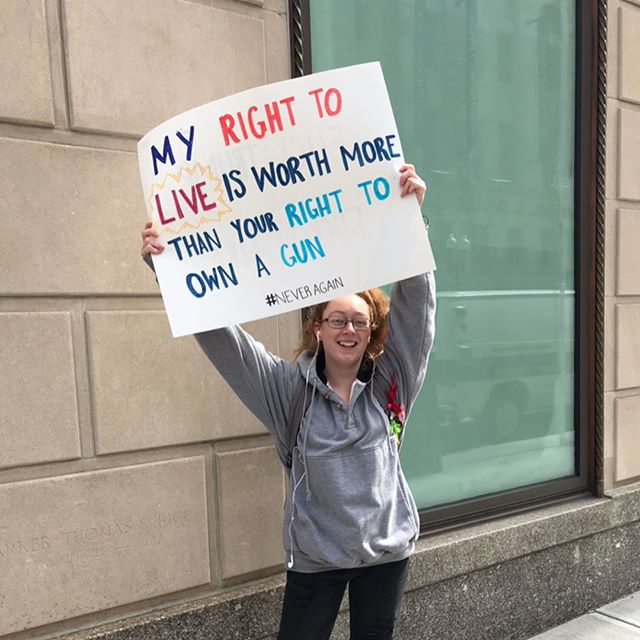 MY RIGHT TO
LIVE IS WORTH MORE
THAN YOUR RIGHT TO
OWN A GUN
#NEVERAGAIN
THOMAS RICE